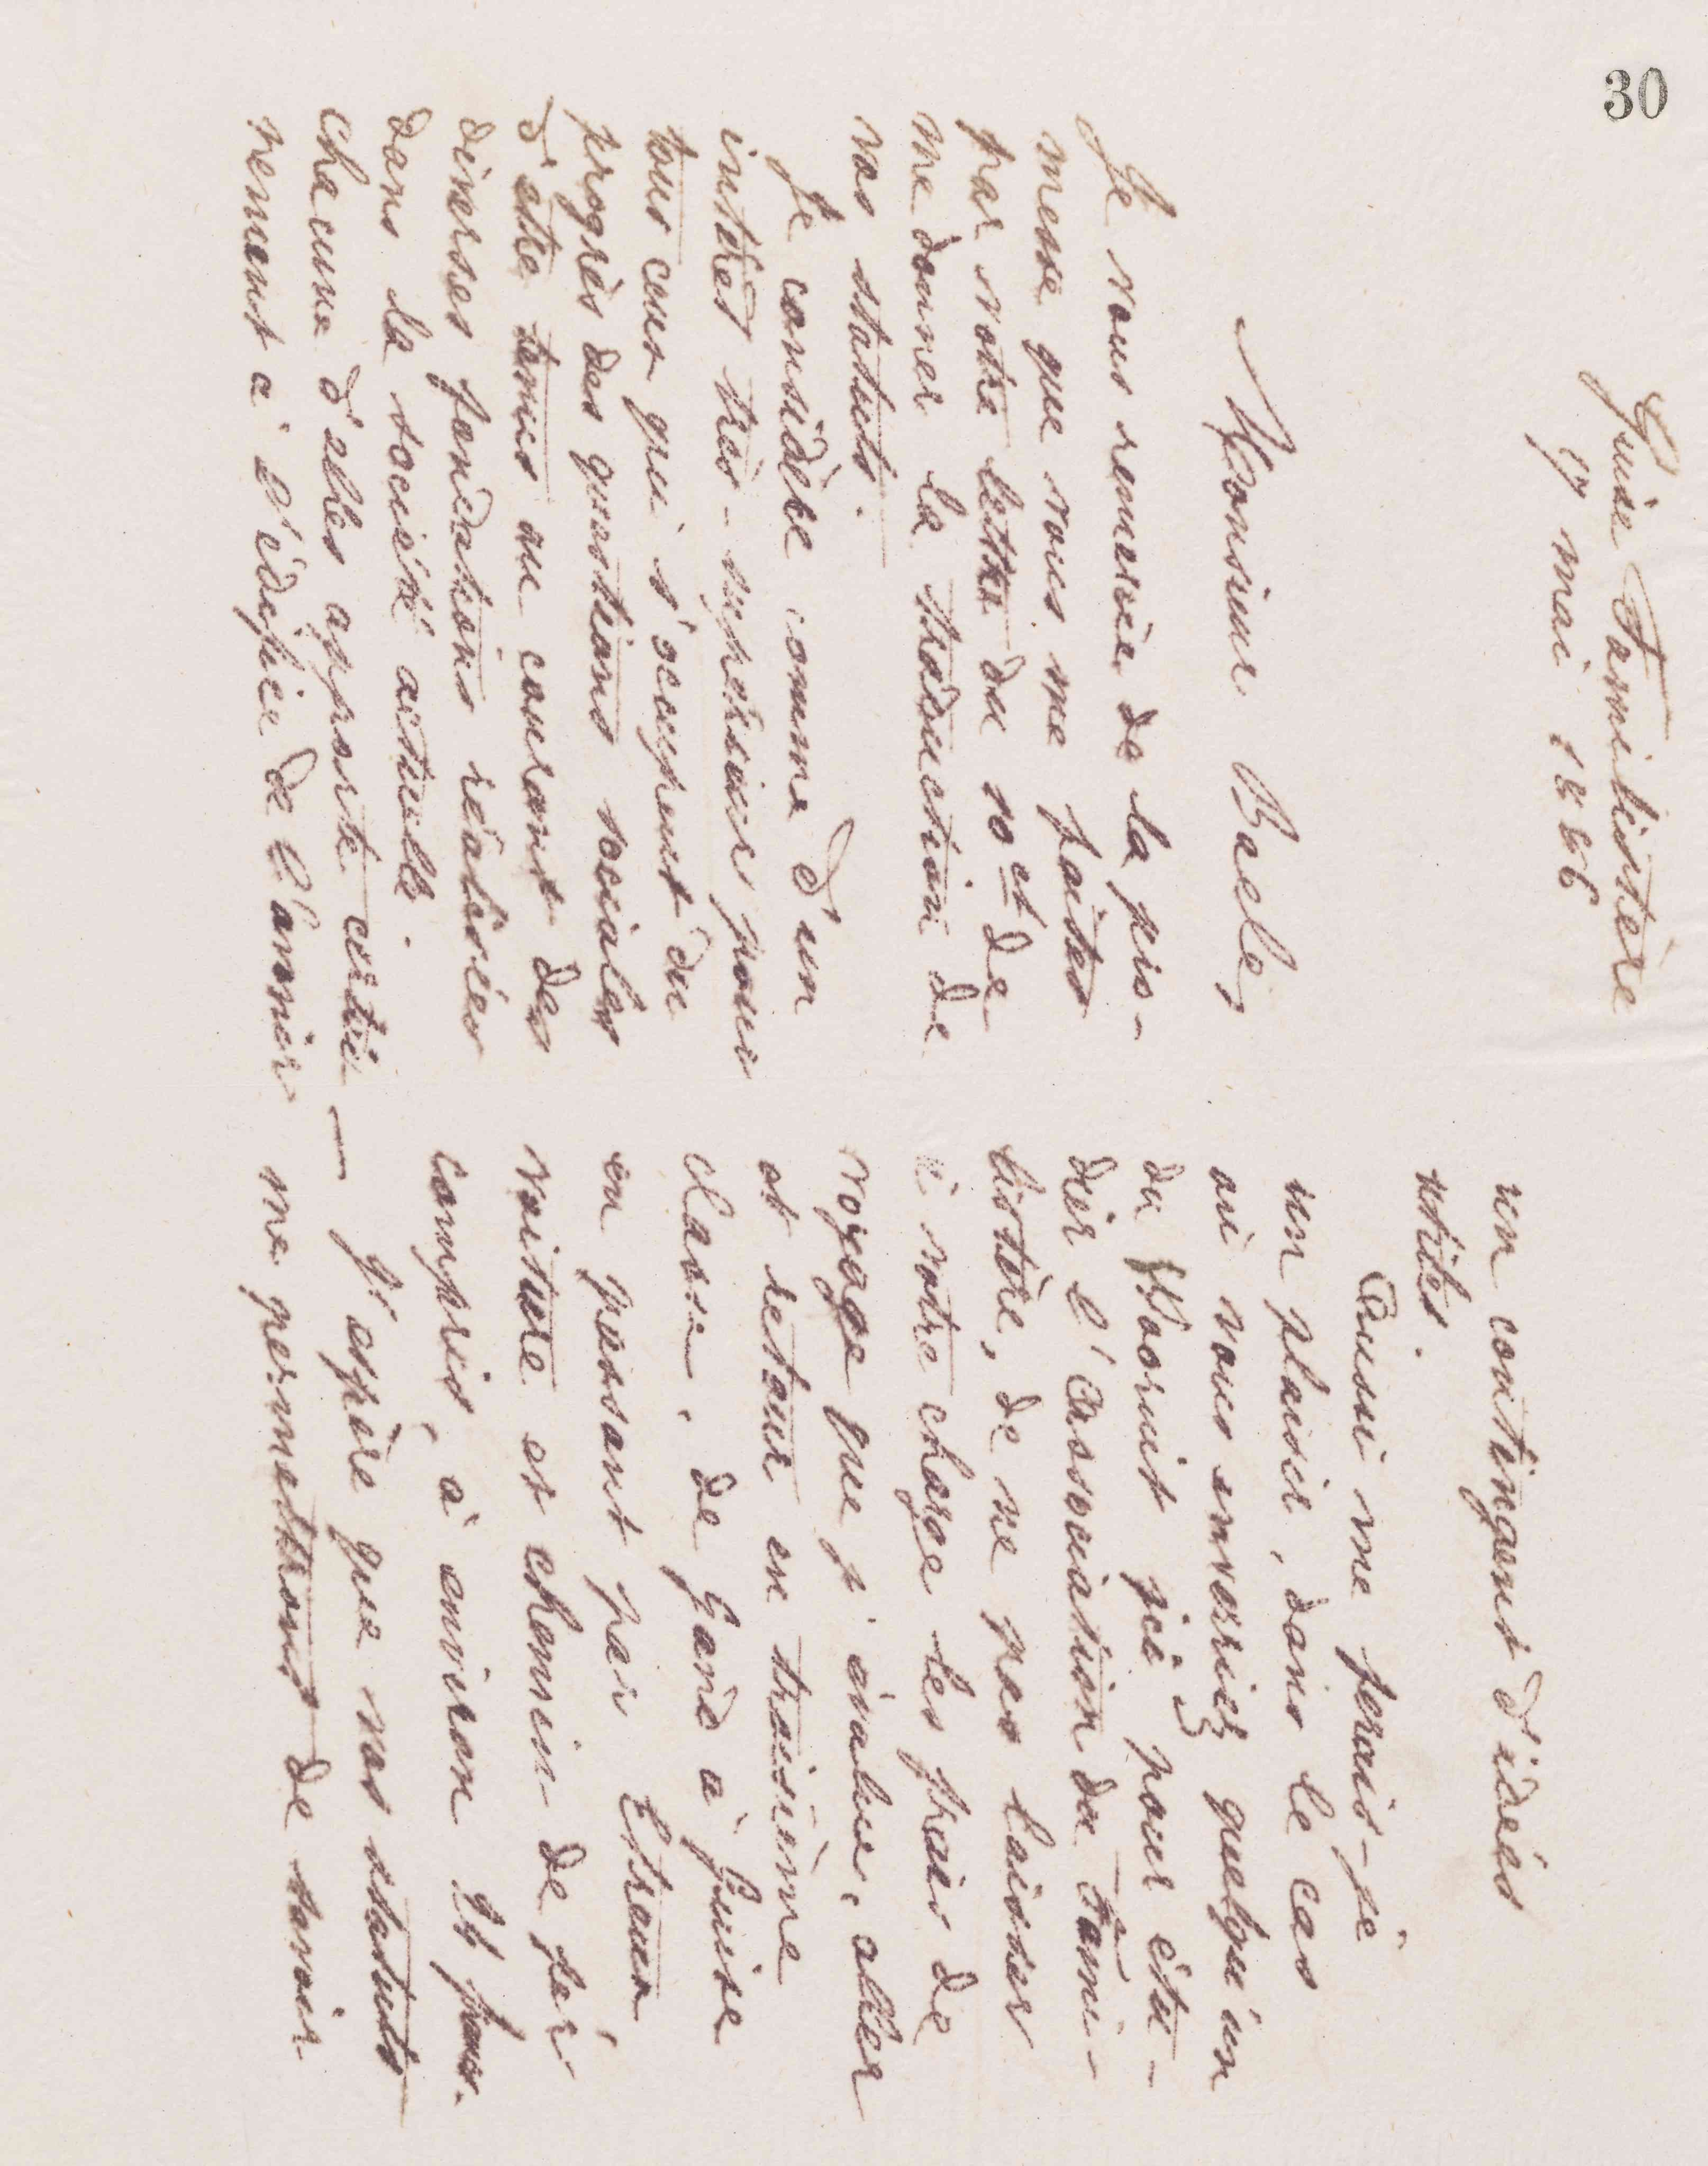 30
Guise Familistère
17 mai 1886
Monsieur Baele,
Je vous remercie de la pro-
messe que vous me faites
par votre lettre du 10 ct de
me donner la traduction de
vos statuts.
Je considère comme d'un
intérêt très-supérieur pour
tous ceux qui s'occupent du
progrès des questions sociales
d'être tenus au courant des
diverses fondations réalisées
dans la société actuelle.
Chacune d'elles apporte certai-
nement à l'édifice de l'avenir
un contingent d'idées
utiles.
Aussi me ferais-je
un plaisir, dans le cas
où vous enverriez quelqu'un
du Vooruit ici pour étu-
dier l'Association du Fami-
listère, de ne pas laisser
à votre charge les frais de
voyage que j'évalue, aller
et retour en troisième
classe, de Gand à Guise
en passant par Etreux
voiture et chemin de fer
compris, à environ 24 francs.
J'espère que vos statuts
me permettront de savoir